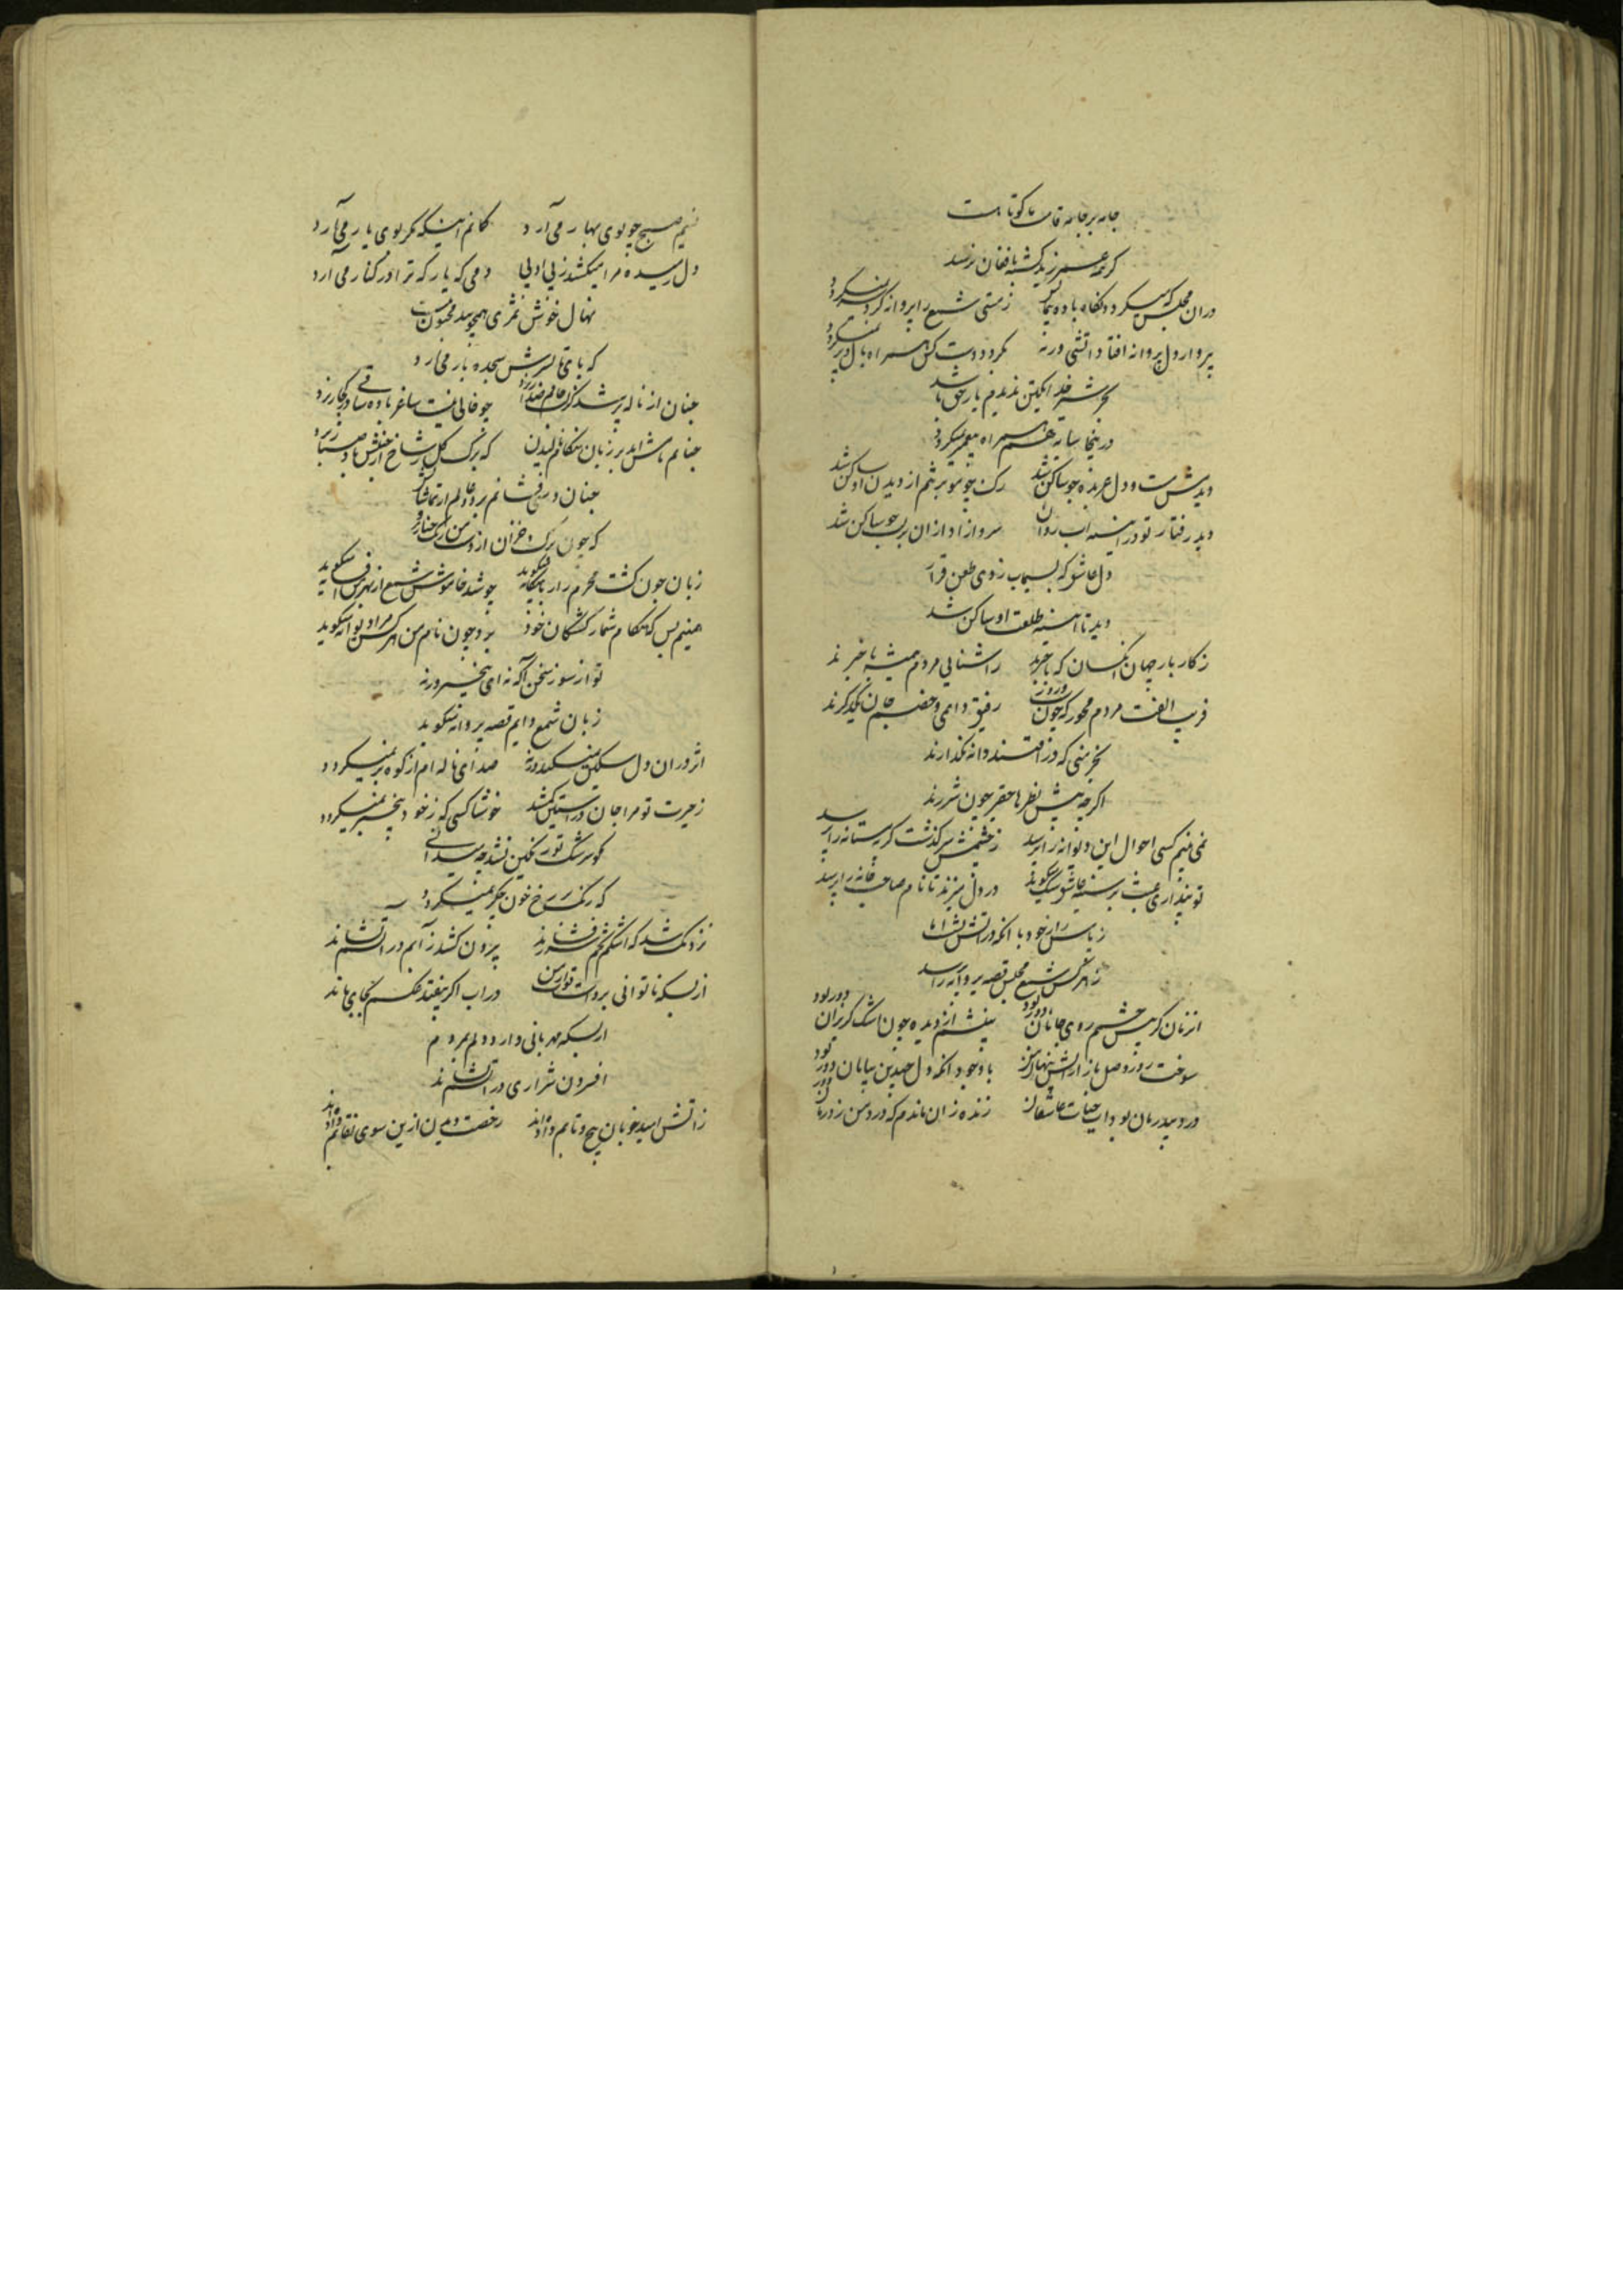 جامه بر جامه قامت ما کوتاهست
گر همه عمر زید کشته بافغان نرسد
دران مجلس که میکردد نگاه باده پیمایش زمستی شمع را پروانه کرد سر نمیکردد
دل پروانه افتاد اتشی ورنه نکردد دست کس همراه بال و پر نمیکردد
بجز شمشیر خود یکتن ندیدم یار حق باشد
درینجا سایه هم همراه پیغمبر نمیکردد
دیدمش مست و دل عربده جو ساکن شد رک چو مو بر تنم از دیدن او ساکن شد
دید رفتار تو در اینه اب روان سرو ازاد ازان بر لب جو ساکن شد
دل عاشق که بسیماب زدی طعن قرار
دید تا اینه طلعت او ساکن شد
ز کار بار جهان انکسان که باخبرند ز اشنایی مردم همیشه باخبرند
فریب الفت مردم مخور که چون روز رفیق دایمی و خصم جان یکدکرند
بخرمنی که در افتند دانه نکذارند
اکرچه پیش نظرها حقیر چون شررند
نمی بینم کسی احوال این دیوانه را پرسد ز چشمش سرکذشت کریه مستانه را پرسد
تو پنداری عبث بر سینه عاشق سنک میکوبد در دل میزند تا نام صاحب خانه را پرسد
ز پاس راز خود با انکه در اتش نشد اها
ز هر کس شمع مجلس قصه پروانه را پرسد
انزمان کز پیش چشمم روی جانان دور بود بینشم از دیده چون اشک کریزان دور بود
سوخت روز وصل باز از اتش پنهان من با وجود انکه دل چندین بیابان دور بود
درد بیدرمان بود اب حیات عاشقان زنده زان ماندم که درد من ز درمان دور بود
نسیم صبح چو بوی بهار می آرد کمانم اینکه مکر بوی یار می آرد
دل رمیده مرا میکشد ز بی ادبی دمی که یار که ترا در کنار می آرد
نهال خوش ثمری همچو بید مجنون نیست
که پای تا بسرش سجده بار می آرد
چنان از ناله پر شد کوش عالم چو خالی نیست ساغر باده ساقی در کجا ریزد
چنانم ماتمش اید بر زبان هنکام نالیدن که برک کل ز شاخ از جنبش باد صبا ریزد
چنان دست می فشانم بر دو عالم از تماشایش
که چون برک خزان از دست من رنک حنا ریزد
زبان چون کشت محرم راز با بیکانه نمیکوید چو شد خاموش شمع از بهر کس افسانه میکوید
همینم بس که هنکام شمار کشتکان خود برد چون نام من هر کس مرا دیوانه میکوید
تو از سوز سخن آکه نه ای بیخبر ورنه
زبان شمع دایم قصه پروانه میکوید
اثر در ان دل سنکین نمیکند ورنه صدای ناله ام از کوه بر نمیکردد
ز حیرت تو مرا جان در استین کشد خوشا کسی که ز خود بیخبر نمیکردد
کهر سرشک تو رنکین نشد چه میدانی
که رنک رخ خون جکر نمیکردد
نزدیک شد که اشکم تخم شرر فشاند بیرون کشد ز آبم در آتشم نشاند
از بسکه ناتوانی بردست تواز من در اب اکر بیفتد عکسم بجای ماند
از بسکه مهربانی دارد دلم بمردم
افسردن شراری در اتشم نشاند
ز اتش امید خوبان پیچ و تابم داده اند رخصت دیدن ازین سوی نقابم داده اند